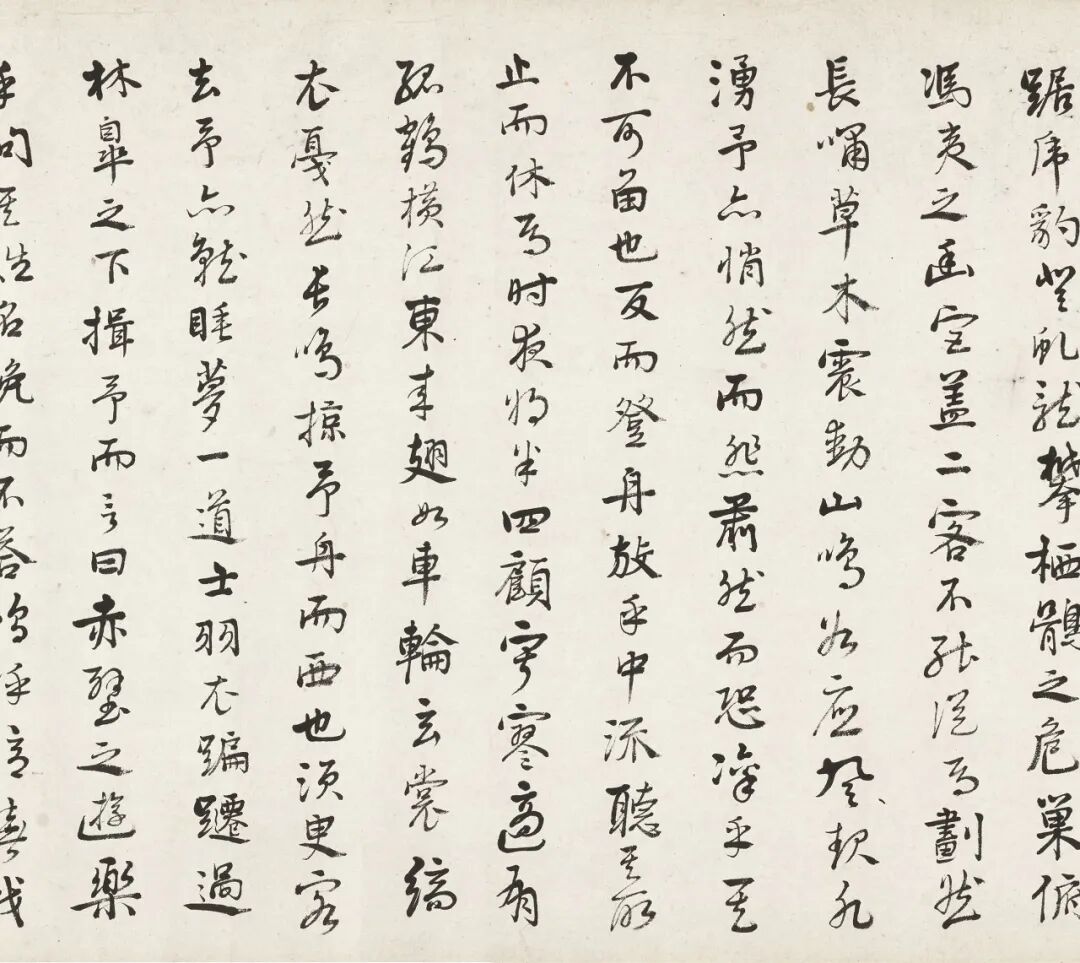 踞虎豹登虬龍攀栖鶻之危巢俯
馮夷之幽宮蓋二客不能從焉劃然
長嘯草木震動山鳴谷應風起水
湧予亦悄然而悲肅然而恐凜乎其
不可留也反而登舟放乎中流聽其所
止而休焉时夜將半四顧寂寥適有
孤鶴橫江東來翅如車輪玄裳縞
衣戛然長鳴掠予舟而西也須臾客
去予亦就睡夢一道士羽衣蹁躚過
林皐之下揖予而言曰赤壁之遊樂
乎問其姓名俛而不答嗚呼噫嘻我